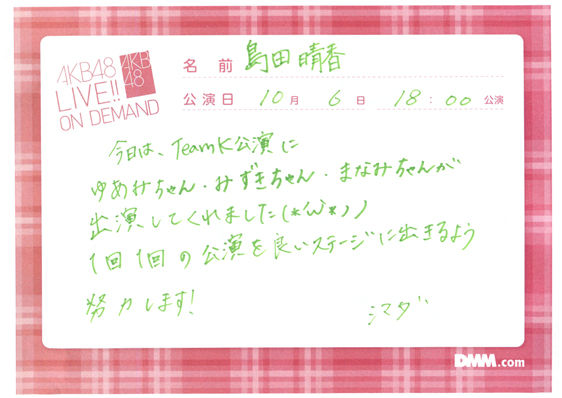 AKB48
LIVE!!
ON DEMAND
AKB
48
名前 島田晴香
公演日 10月 6日 18:00 公演
今日は、TeamK公演に
ゆあみちゃん・みずきちゃん・まなみちゃんが
出演してくれました(*'ω'*))
1回1回の公演を良いステージに出きるよう
努力します!
シマダ
DMM.com